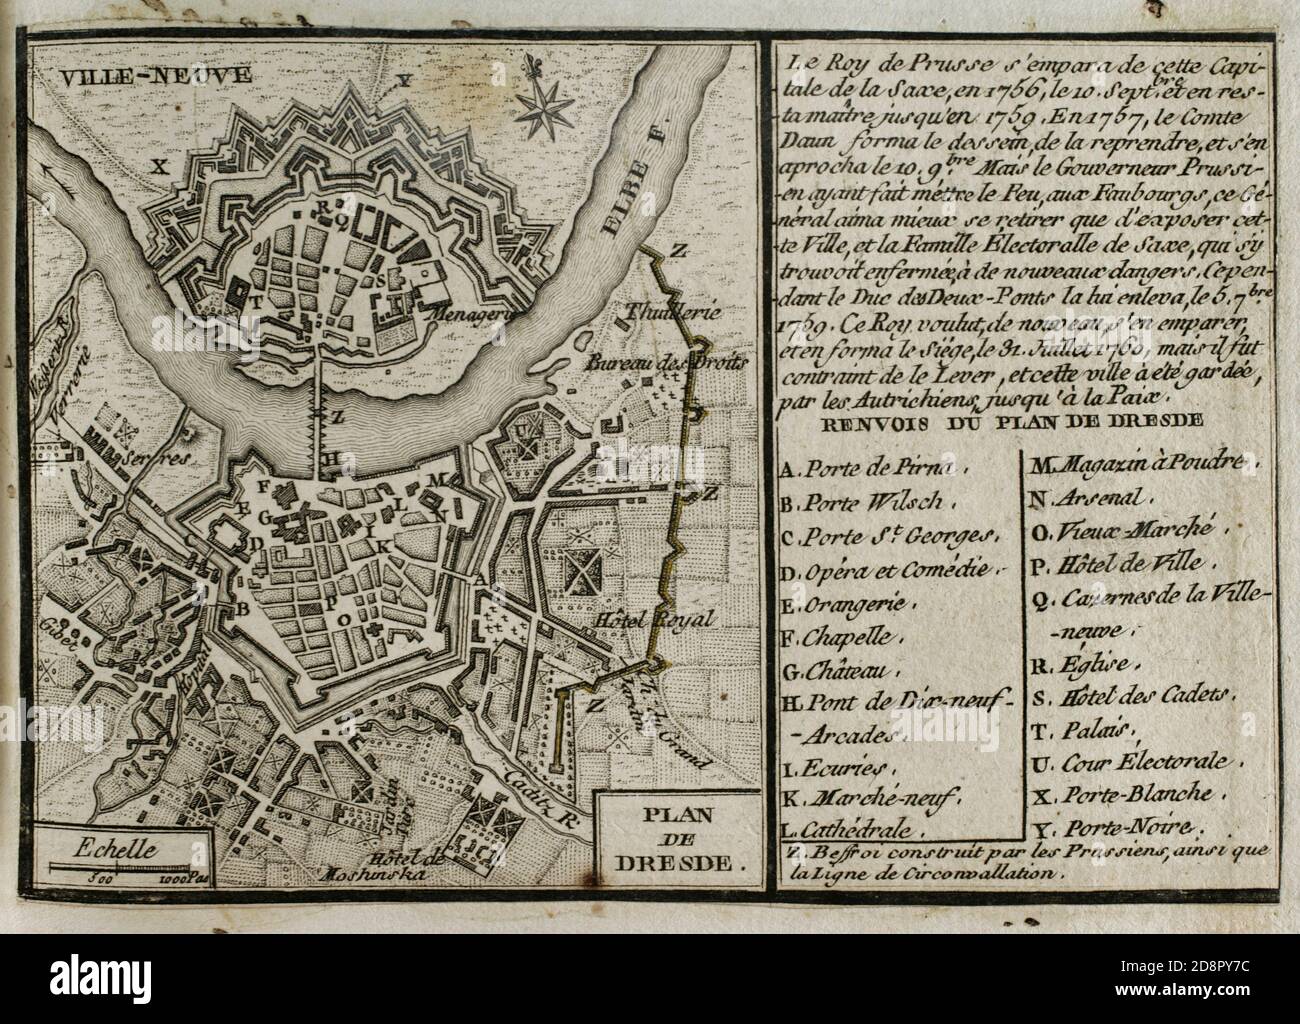 VILLE-NEUVE
Y
X
ELBE F.
R
Q
S
T
Menagerie
Z
Thuillerie
Bureau des Droits
Z
H
U
Z
Serres
F
E
G
D
L
M
N
I
K
A
B
P
O
Hôtel Royal
Gibet
Hopital
Z
Jardin
Caditz R.
Jardin Turc
Hôtel de
Moshinska
Echelle
500 1000 Pas
PLAN
DE
DRESDE.
Le Roy de Prusse s'empara de cette Capi-
tale de la Saxe, en 1756, le 10. Septbre et en res-
ta maître jusqu'en 1759. En 1757, le Comte
Daun forma le dessein, de la reprendre, et s'en
aprocha le 10. 9bre Mais le Gouverneur Prussi-
en ayant fait mettre le Feu, aux Faubourgs, ce Gé-
néral aima mieux se retirer que d'exposer cet-
te Ville, et la Famille Électoralle de Saxe, qui s'y
trouvoit enfermée, à de nouveaux dangers. Cepen-
dant le Duc des Deux-Ponts la lui enleva, le 5. 7bre
1759. Ce Roy voulut, de nouveau, s'en emparer,
et en forma le Siége, le 31. Juillet 1760, mais il fut
contraint de le Lever, et cette ville à été gardée,
par les Autrichiens, jusqu'à la Paix.
RENVOIS DU PLAN DE DRESDE
A. Porte de Pirna.
B. Porte Wilsch.
C. Porte St. Georges.
D. Opéra et Comédie.
E. Orangerie.
F. Chapelle.
G. Château.
H. Pont de Dix-neuf-
-Arcades.
I. Ecuries.
K. Marché-neuf.
L. Cathédrale.
M. Magazin à Poudre.
N. Arsenal.
O. Vieux-Marché.
P. Hôtel de Ville.
Q. Cazernes de la Ville-
-neuve.
R. Église.
S. Hôtel des Cadets.
T. Palais.
U. Cour Électorale.
X. Porte-Blanche.
Y. Porte-Noire.
Z. Beffroi construit par les Prussiens, ainsi que
la Ligne de Circonvallation.
alamy
Image ID: 2D8PY7C
www.alamy.com